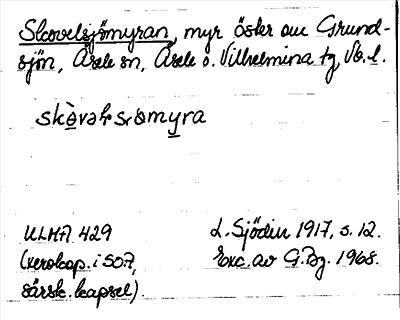 Skovelsjömyran, myr öster om Grund-
sjön, Åsele sn, Åsele o. Vilhelmina tg, Vb. l.
skòvəlsɾomyra
ULMA 429
(xerokop. i SOA,
särsk. kapsel).
L. Sjödin 1917, s. 12.
Exc. av G. Bg. 1968.